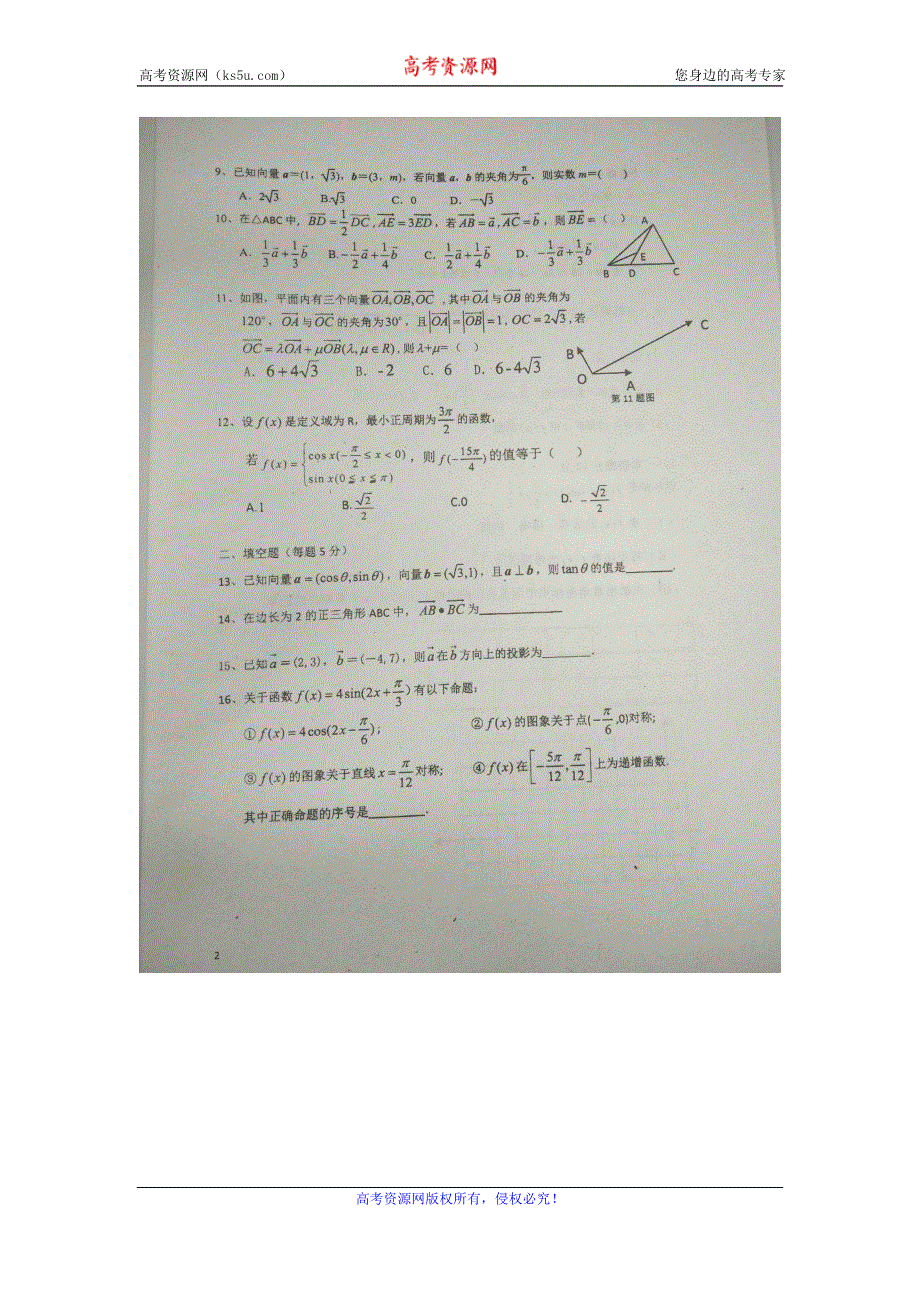 高考资源网（ks5u.com）
高考资源网
您身边的高考专家
9、已知向量 a＝(1，√3)，b＝(3，m)，若向量 a，b 的夹角为 π/6，则实数 m＝( )
A．2√3 B.√3 C．0 D．－√3
10、在△ABC 中，BD = 1/2 DC，AE = 3ED，若 AB = a，AC = b，则 BE =（ ）
A．1/3 a + 1/3 b B. -1/2 a + 1/4 b C．1/2 a + 1/4 b D．-1/3 a + 1/3 b
A
E
B D C
11、如图，平面内有三个向量 OA, OB, OC ，其中 OA 与 OB 的夹角为
120°，OA 与 OC 的夹角为 30°，且 |OA| = |OB| = 1，OC = 2√3，若
OC = λOA + μOB(λ, μ ∈ R)，则 λ+μ=（ ）
A．6+4√3 B．-2 C．6 D．6-4√3
C
B
O
A
第 11 题图
12、设 f(x) 是定义域为 R，最小正周期为 3π/2 的函数，
若 f(x) = { cos x(-π/2 ≤ x < 0)
sin x(0 ≦ x ≦ π)
，则 f(-15π/4) 的值等于（ ）
A.1 B. √2/2 C.0 D. -√2/2
二、填空题（每题 5 分）
13、已知向量 a = (cosθ, sinθ)，向量 b = (√3,1)，且 a ⊥ b，则 tanθ 的值是______.
14、在边长为 2 的正三角形 ABC 中，AB • BC 为__________
15、已知 a＝(2,3)，b＝(－4,7)，则 a 在 b 方向上的投影为______.
16、关于函数 f(x) = 4sin(2x + π/3) 有以下命题:
① f(x) = 4cos(2x - π/6)； ② f(x) 的图象关于点(-π/6,0)对称;
③ f(x) 的图象关于直线 x = π/12 对称; ④ f(x) 在 [-5π/12, π/12] 上为递增函数.
其中正确命题的序号是_______.
2
高考资源网版权所有，侵权必究！